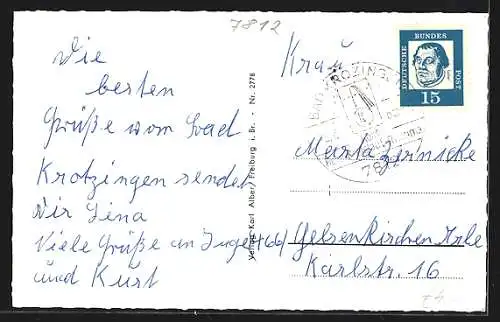 7812
Die
besten
Grüße vom Bad
Krotzingen sendet
Dir Lina
Viele Grüße an Inge
und Kurt
Verlag: Karl Alber, Freiburg i. Br. - Nr. 2778
DEUTSCHE BUNDES POST
15
BAD KROZINGEN
7812
Frau
Marta Zernicke
466 Gelsenkirchen Erle
Karlstr. 16